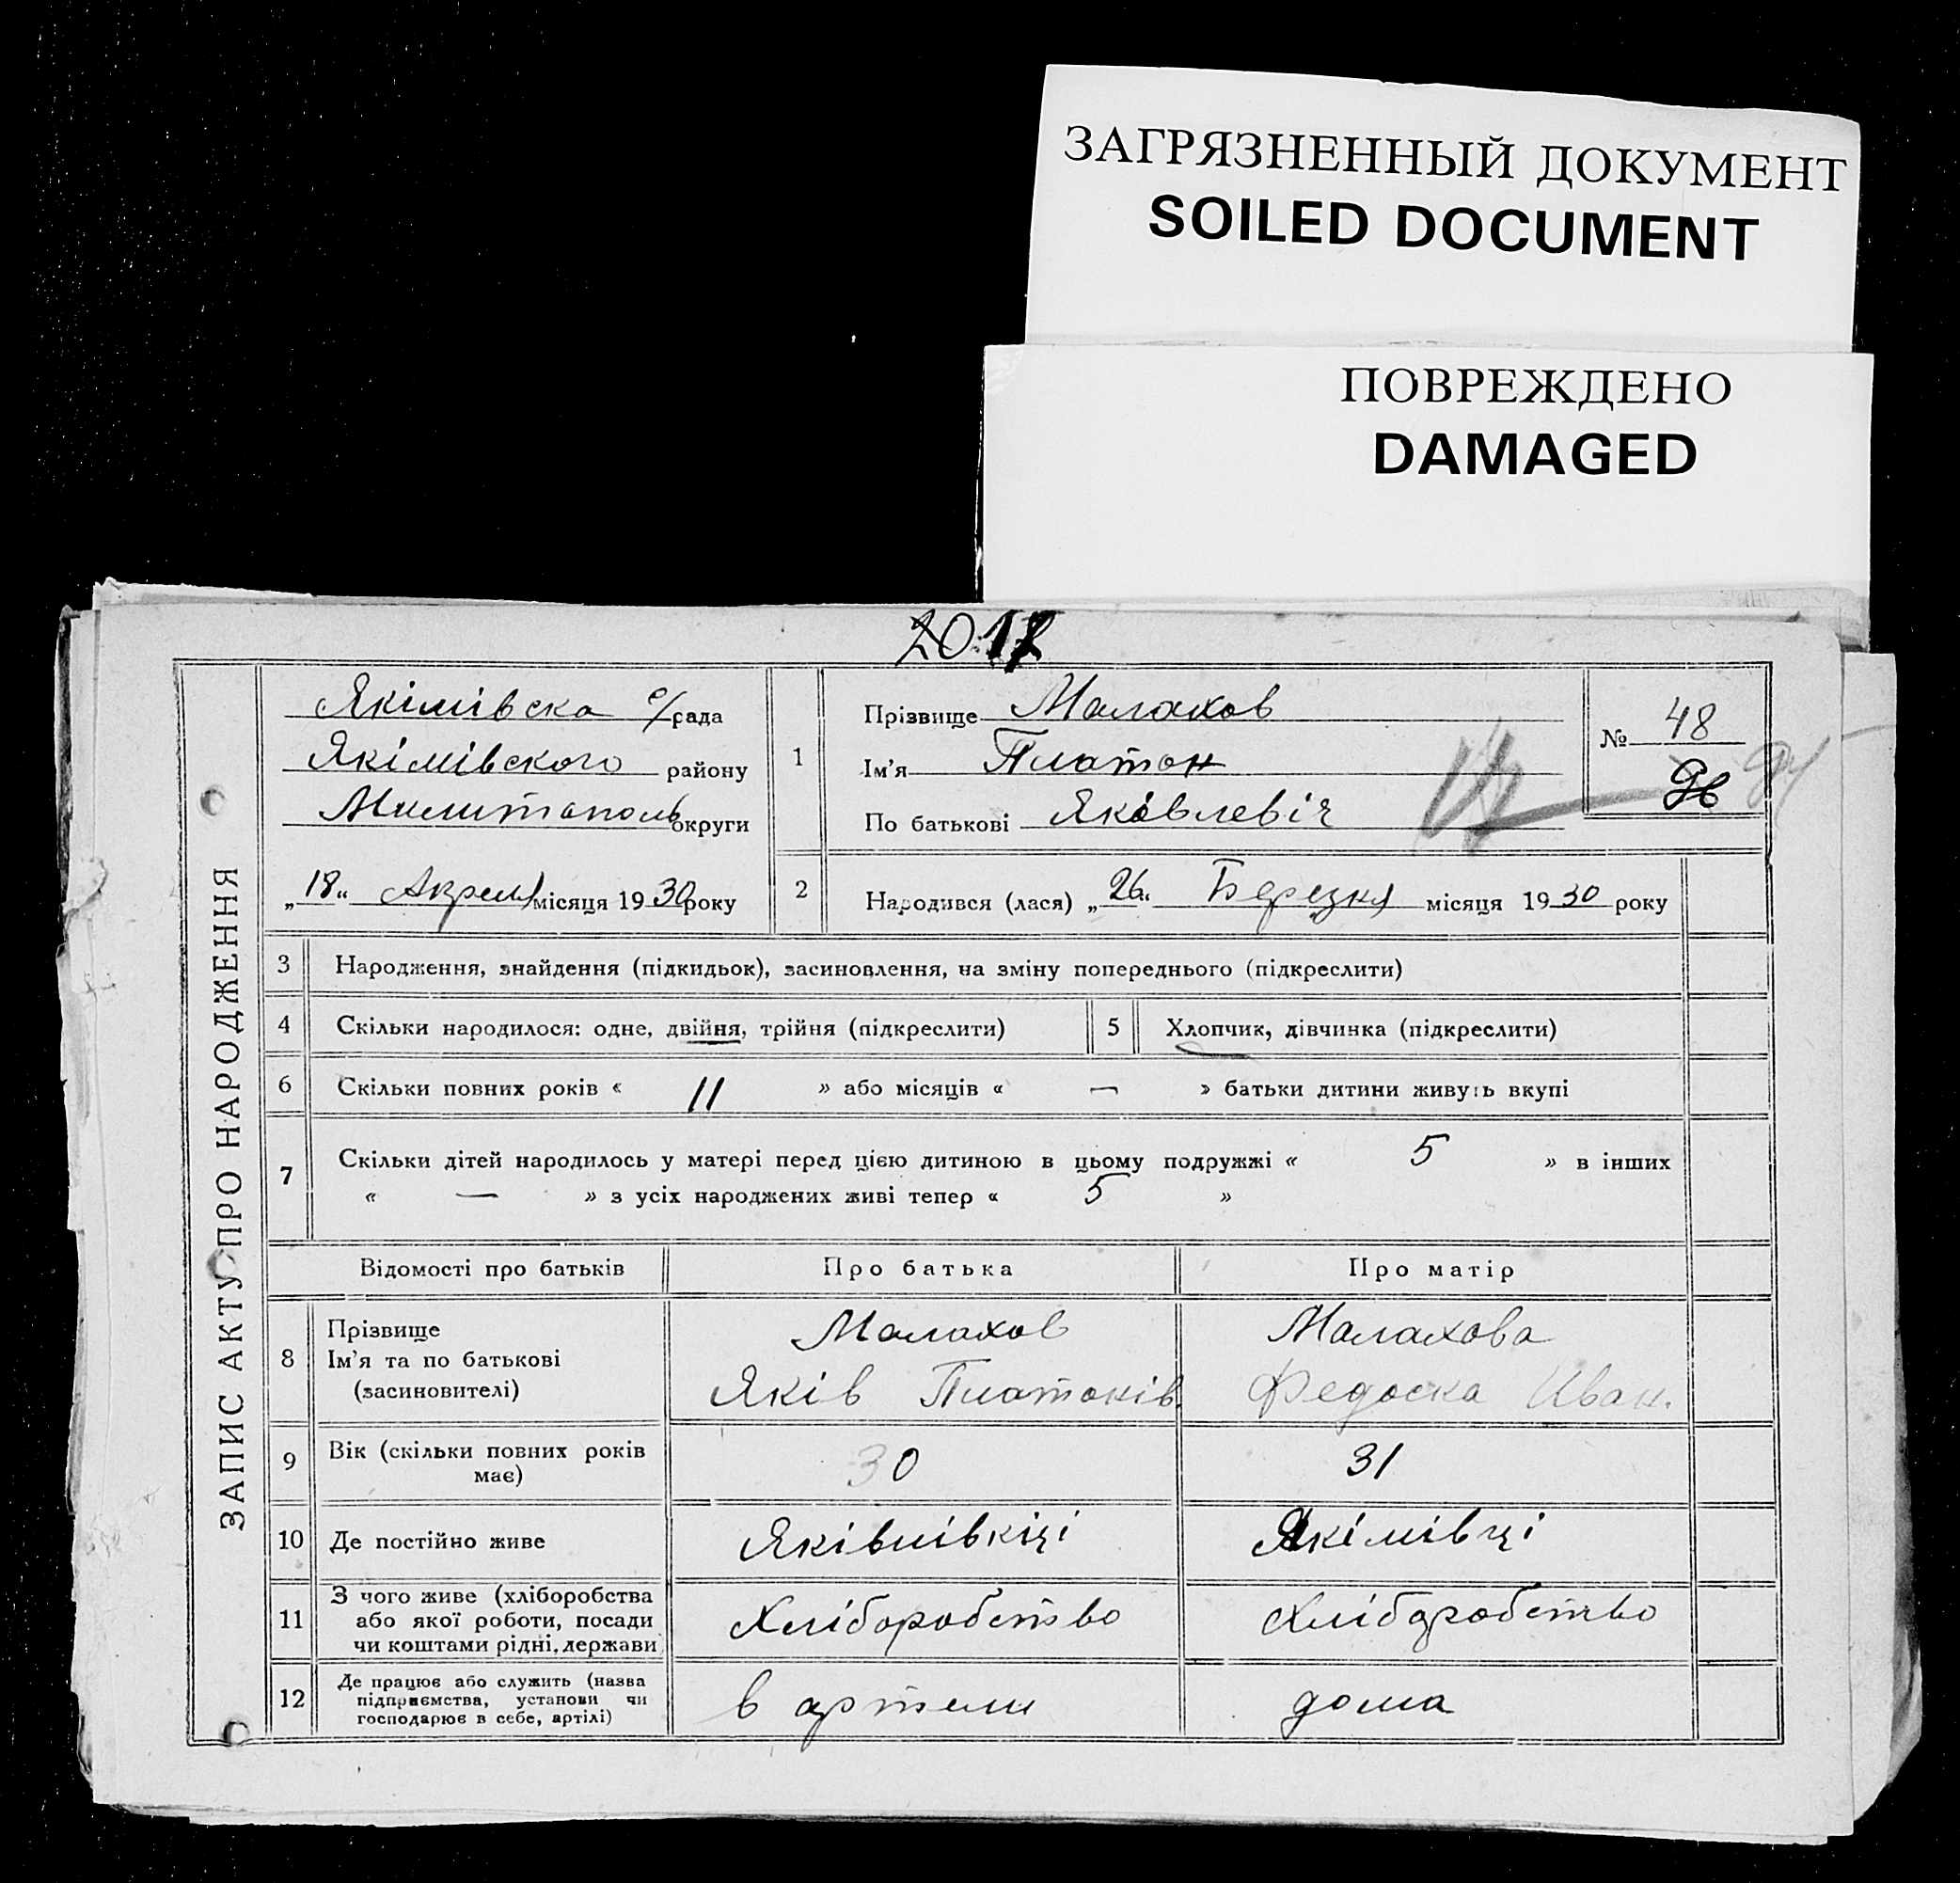 ЗАГРЯЗНЕННЫЙ ДОКУМЕНТ
SOILED DOCUMENT
ПОВРЕЖДЕНО
DAMAGED
ЗАПИС АКТУ ПРО НАРОДЖЕННЯ
Якімівска с/рада
Якімівского району
Милитополь округи
„18“ Апреля місяця 1930 року
1 Прізвище Малахов
Ім'я Платон
По батькові Яковлевіч
№ 48
2 Народився (лася) „26“ Березня місяця 1930 року
3 Народження, знайдення (підкидьок), засиновлення, на зміну попереднього (підкреслити)
4 Скільки народилося: одне, двійня, трійня (підкреслити) 5 Хлопчик, дівчинка (підкреслити)
6 Скільки повних років « 11 » або місяців « — » батьки дитини живуть вкупі
7 Скільки дітей народилось у матері перед цією дитиною в цьому подружжі « 5 » в інших
« — » з усіх народжених живі тепер « 5 »
Відомості про батьків Про батька Про матір
8 Прізвище Малахов Малахова
Ім'я та по батькові
(засиновителі) Яків Платонів. Федоска Иван.
9 Вік (скільки повних років має) 30 31
10 Де постійно живе Яківмівкіці Якімівці
11 З чого живе (хліборобства
або якої роботи, посади
чи коштами рідні, держави Хліборобство Хліборобство
12 Де працює або служить (назва
підприємства, установи чи
господарює в себе, артілі) в артели дома